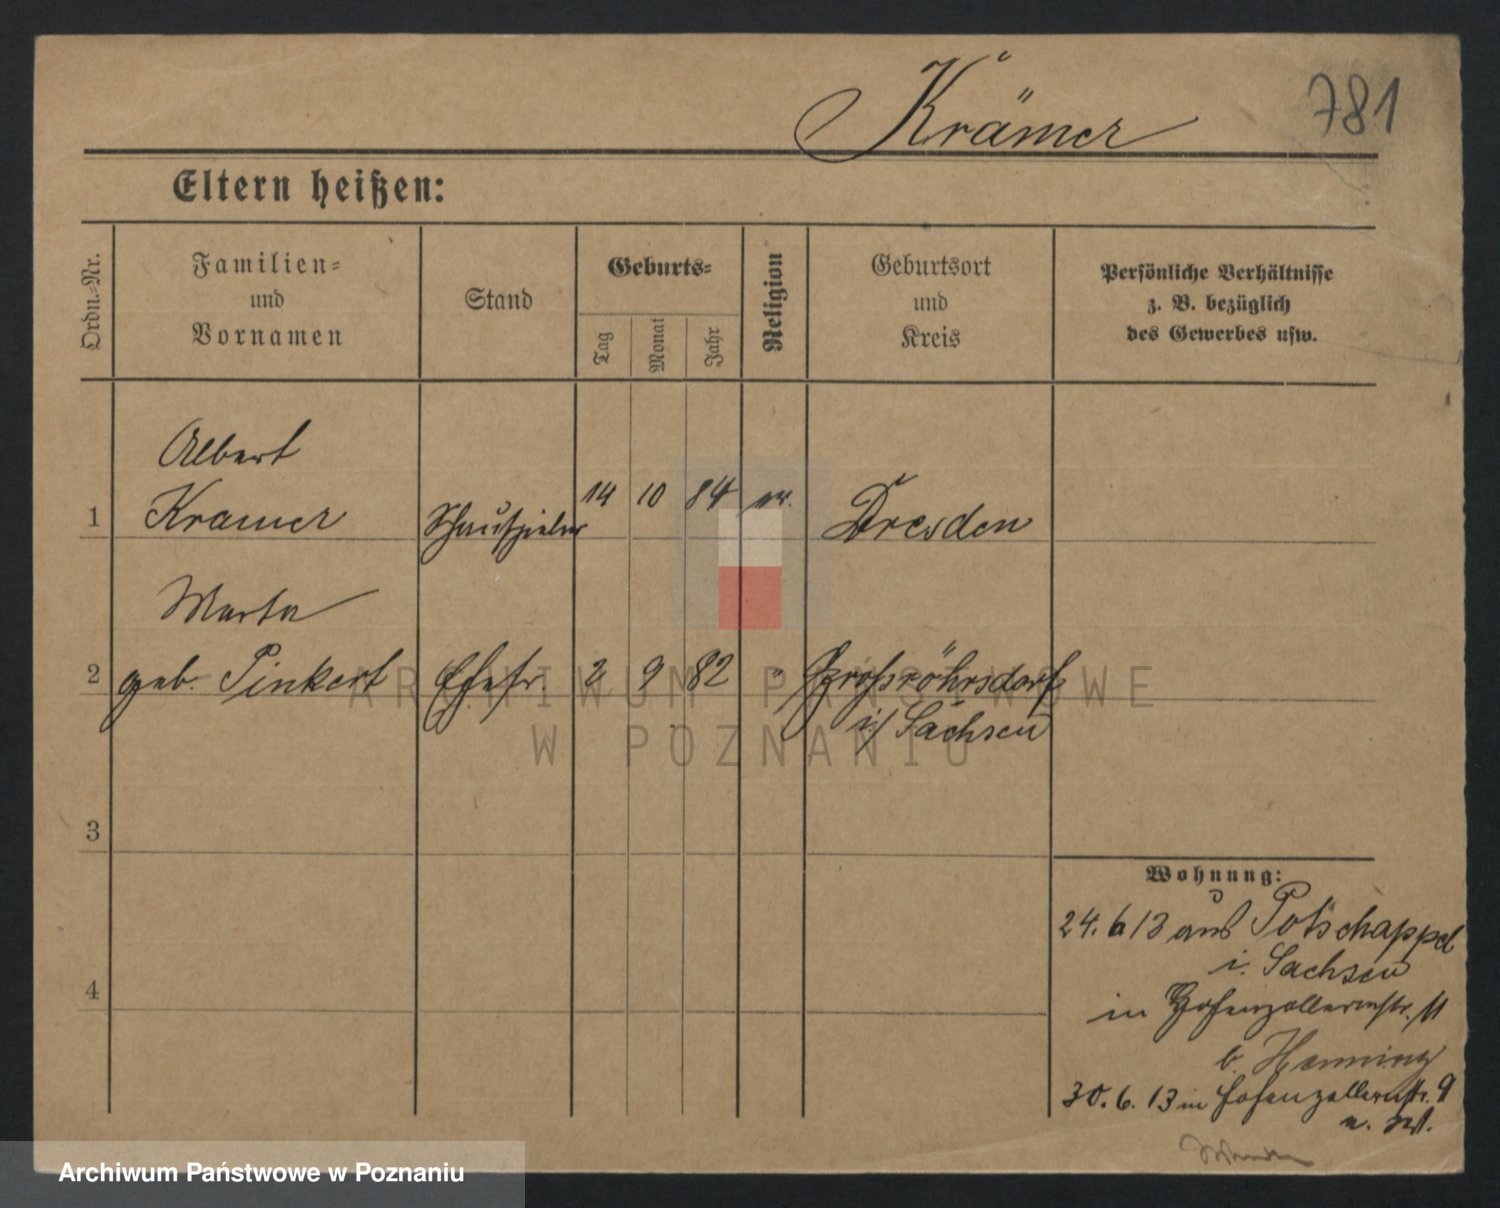 Krämer
781
Eltern heißen:
Ordn.-Nr.
Familien-
und
Vornamen
Stand
Geburts-
Tag
Monat
Jahr
Religion
Geburtsort
und
Kreis
Persönliche Verhältnisse
z. B. bezüglich
des Gewerbes usw.
Albert
1 Kramer Schauspieler 14 10 84 Dresden
Marta
2 geb. Pinkert Ehefr. 2 9 82 " Großröhrsdorf
i/ Sachsen
3
4
Wohnung:
24. 6 13 aus Potschappel
i. Sachsen
in Hohenzollernstr. 11
b. Henning
30. 6. 13 in Hohenzollernstr. 9
ARCHIWUM PAŃSTWOWE
W POZNANIU
Archiwum Państwowe w Poznaniu